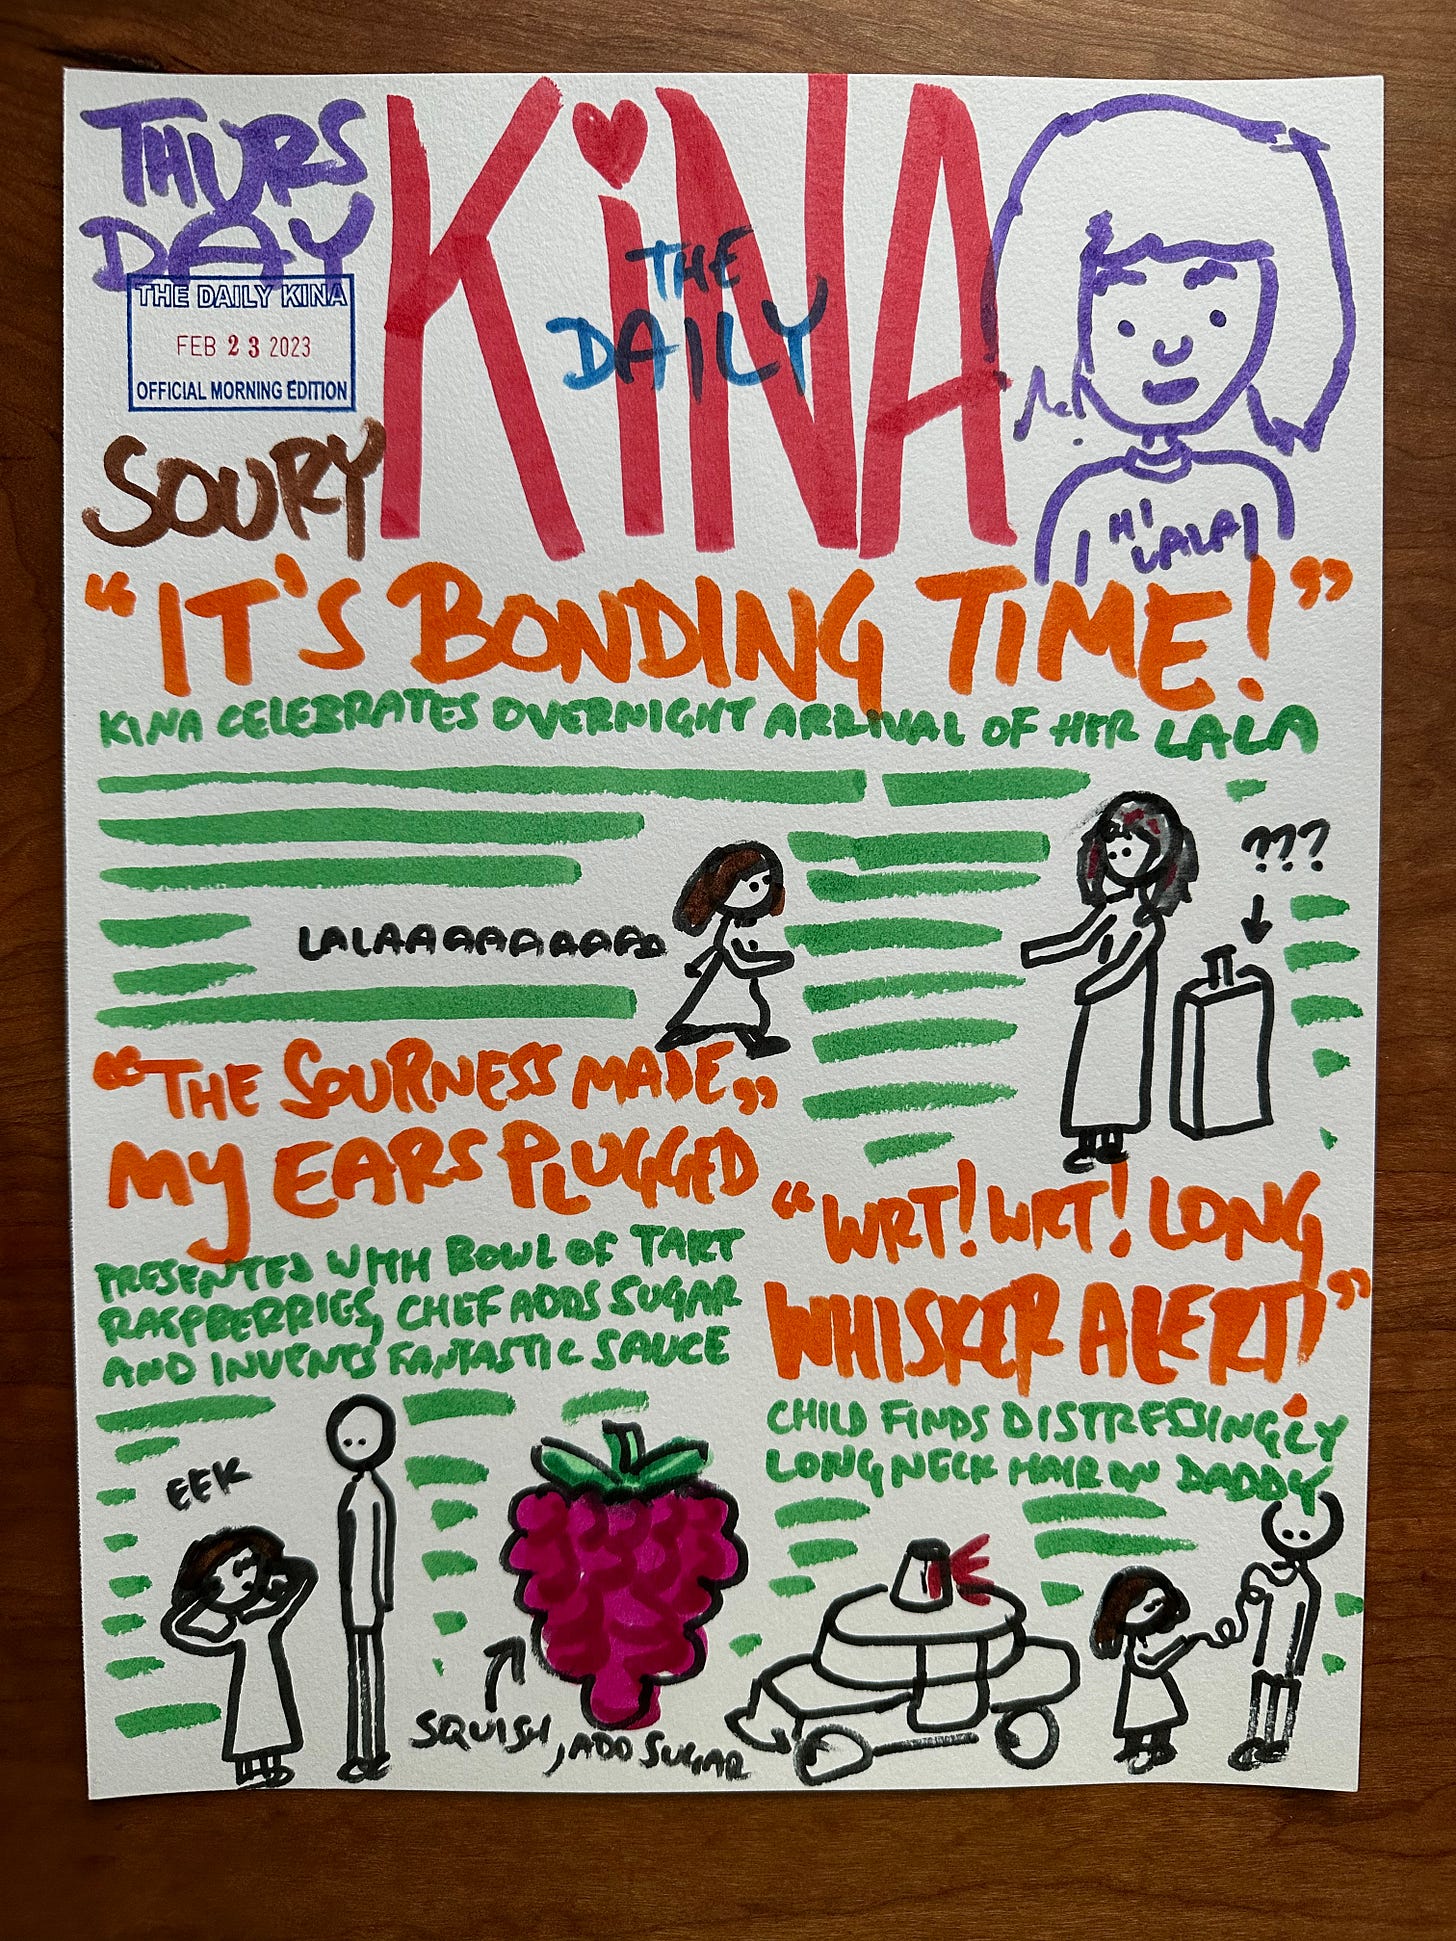 THURS
DAY
THE DAILY KINA
FEB 23 2023
OFFICIAL MORNING EDITION
SOURY
KiNA
THE
DAILY
HI
LALA!
"IT'S BONDING TIME!"
KINA CELEBRATES OVERNIGHT ARRIVAL OF HER LALA
LALAAAAAAAAAA
???
"THE SOURNESS MADE"
MY EARS PLUGGED
PRESENTED WITH BOWL OF TART
RASPBERRIES, CHEF ADDS SUGAR
AND INVENTS FANTASTIC SAUCE
EEK
SQUISH, ADD SUGAR
"WRT! WRT! LONG
WHISKER ALERT!"
CHILD FINDS DISTRESSINGLY
LONG NECK HAIR ON DADDY